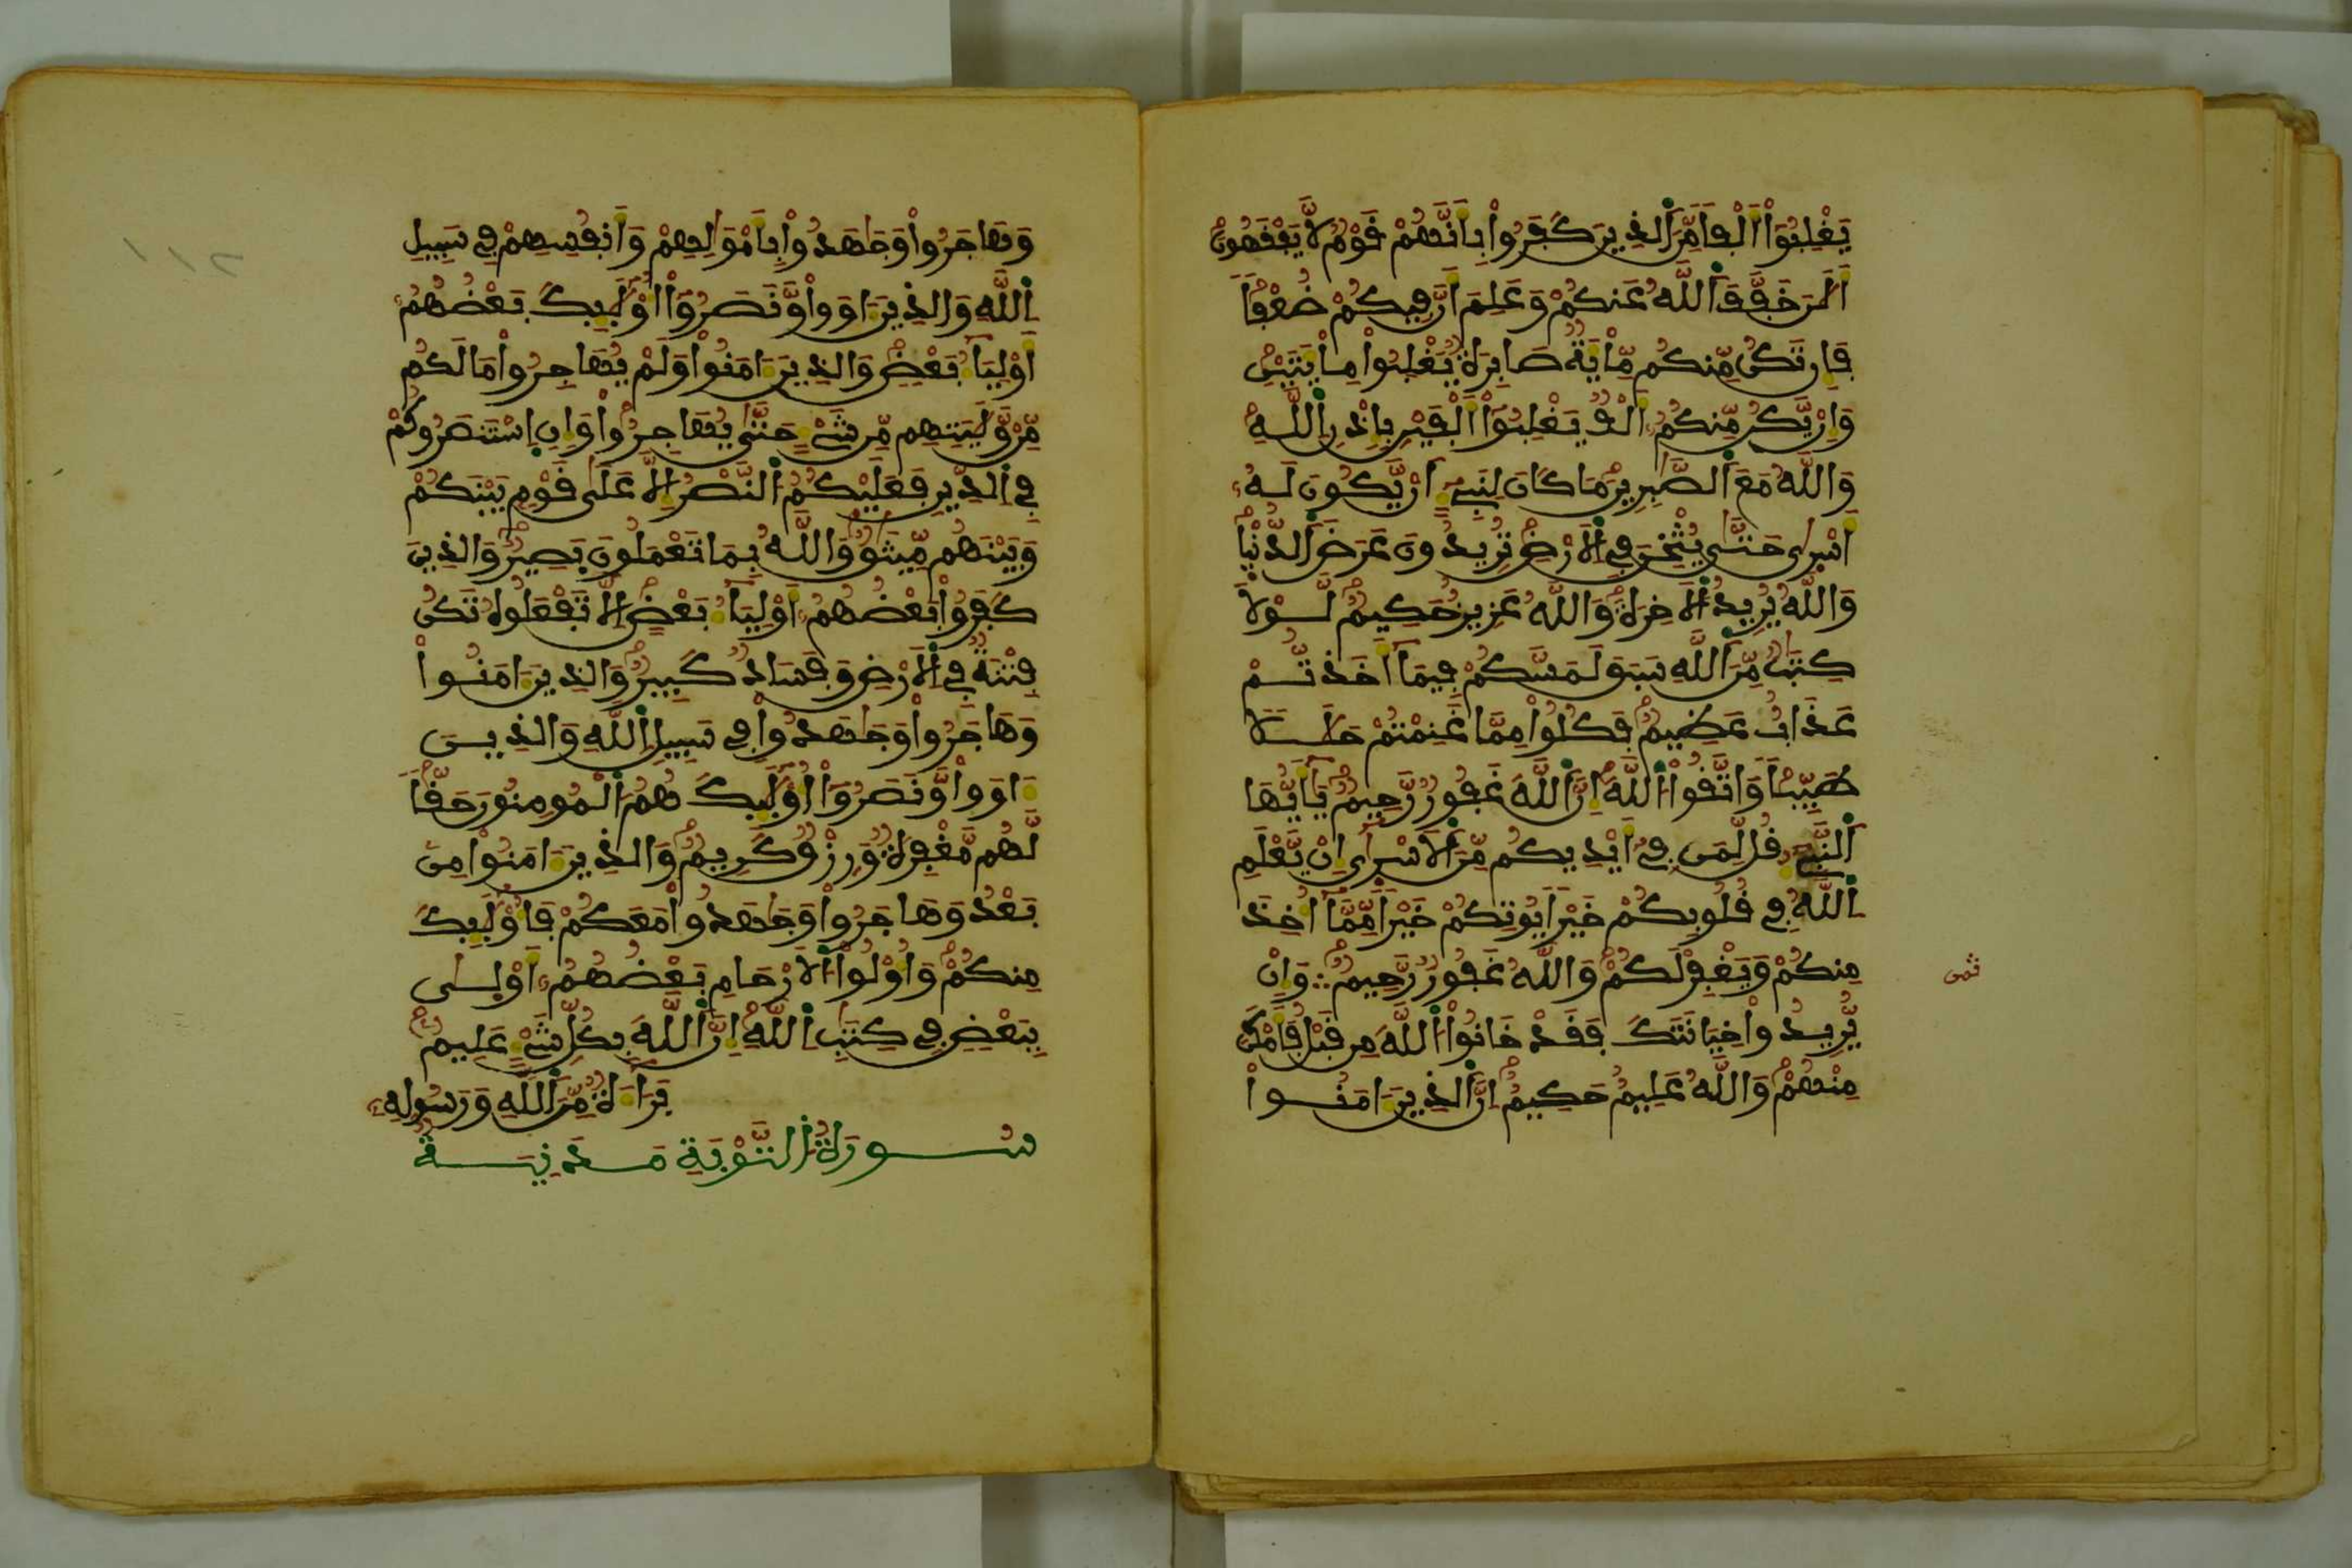 يَغْلِبُوٓاْ أَلْفاً مِّنَ ٱلذِينَ كَفَرُواْ بِأَنَّهُمْ قَوْمٌ لَّا يَفْقَهُونَ
ٱلَٰنَ خَفَّفَ ٱللَّهُ عَنكُمْ وَعَلِمَ أَنَّ فِيكُمْ ضُعْفاً
فَإِن تَكُن مِّنكُم مِّاْيَةٌ صَابِرَةٌ يَغْلِبُواْ مِاْيَتَيْنِ
وَإِنْ يَّكُن مِّنكُمُۥٓ أَلْفٌ يَغْلِبُوٓاْ أَلْفَيْنِ بِإِذْنِ ٱللَّهِ
وَٱللَّهُ مَعَ ٱلصَّٰبِرِينَ مَا كَانَ لِنَبِيٓءٍ أَنْ يَّكُونَ لَهُۥٓ
أَسْرٜىٰ حَتَّىٰ يُثْخِنَ فِي ٱلَارْضِ تُرِيدُونَ عَرَضَ ٱلدُّنْيٜا
وَٱللَّهُ يُرِيدُ ٱلَاخِرَةَ وَٱللَّهُ عَزِيزٌ حَكِيمٌ لَّوْلَا
كِتَٰبٌ مِّنَ ٱللَّهِ سَبَقَ لَمَسَّكُمْ فِيمَآ أَخَذتُّمْ
عَذَابٌ عَظِيمٌ فَكُلُواْ مِمَّا غَنِمْتُمْ حَلَٰلًا
طَيِّباً وَٱتَّقُواْ ٱللَّهَ إِنَّ ٱللَّهَ غَفُورٌ رَّحِيمٌ يَٰٓأَيُّهَا
ٱلنَّبِيٓءُ قُل لِّمَن فِيٓ أَيْدِيكُم مِّنَ ٱلَاسْرٜىٰٓ إِنْ يَّعْلَمِ
ٱللَّهُ فِي قُلُوبِكُمْ خَيْراً يُوتِكُمْ خَيْراً مِّمَّآ أُخِذَ
مِنكُمْ وَيَغْفِرْ لَكُمْ وَٱللَّهُ غَفُورٌ رَّحِيمٌ ۞ وَإِنْ
ثمن
يُّرِيدُواْ خِيَانَتَكَ فَقَدْ خَانُواْ ٱللَّهَ مِن قَبْلُ فَأَمْكَنَ
مِنْهُمْ وَٱللَّهُ عَلِيمٌ حَكِيمٌ إِنَّ ٱلذِينَ ءَامَنُواْ
وَهَاجَرُواْ وَجَٰهَدُواْ بِأَمْوَٰلِهِمْ وَأَنفُسِهِمْ فِي سَبِيلِ
ٱللَّهِ وَٱلذِينَ ءَاوَواْ وَّنَصَرُوٓاْ أُوْلَٰٓئِكَ بَعْضُهُمُۥٓ
أَوْلِيَآءُ بَعْضٍ وَٱلذِينَ ءَامَنُواْ وَلَمْ يُهَاجِرُواْ مَا لَكُم
مِّنْ وَّلَٰيَتِهِم مِّن شَيْءٍ حَتَّىٰ يُهَاجِرُواْ وَإِنِ ٱسْتَنصَرُوكُمْ
فِي ٱلدِّينِ فَعَلَيْكُمُ ٱلنَّصْرُ إِلَّا عَلَىٰ قَوْمِۢ بَيْنَكُمْ
وَبَيْنَهُم مِّيثَٰقٌ وَٱللَّهُ بِمَا تَعْمَلُونَ بَصِيرٌ وَٱلذِينَ
كَفَرُواْ بَعْضُهُمُۥٓ أَوْلِيَآءُ بَعْضٍ إِلَّا تَفْعَلُوهُ تَكُن
فِتْنَةٌ فِي ٱلَارْضِ وَفَسَادٌ كَبِيرٌ وَٱلذِينَ ءَامَنُواْ
وَهَاجَرُواْ وَجَٰهَدُواْ فِي سَبِيلِ ٱللَّهِ وَٱلذِينَ
ءَاوَواْ وَّنَصَرُوٓاْ أُوْلَٰٓئِكَ هُمُ ٱلْمُومِنُونَ حَقّاً
لَّهُم مَّغْفِرَةٌ وَرِزْقٌ كَرِيمٌ وَٱلذِينَ ءَامَنُواْ مِنۢ
بَعْدُ وَهَاجَرُواْ وَجَٰهَدُواْ مَعَكُمْ فَأُوْلَٰٓئِكَ
مِنكُمْ وَأُوْلُواْ ٱلَارْحَامِ بَعْضُهُمُۥٓ أَوْلَىٰ
بِبَعْضٍ فِي كِتَٰبِ ٱللَّهِ إِنَّ ٱللَّهَ بِكُلِّ شَيْءٍ عَلِيمٌ
بَرَآءَةٌ مِّنَ ٱللَّهِ وَرَسُولِهِۦٓ
سُورَةُ ٱلتَّوْبَةِ مَدَنِيَّةٌ